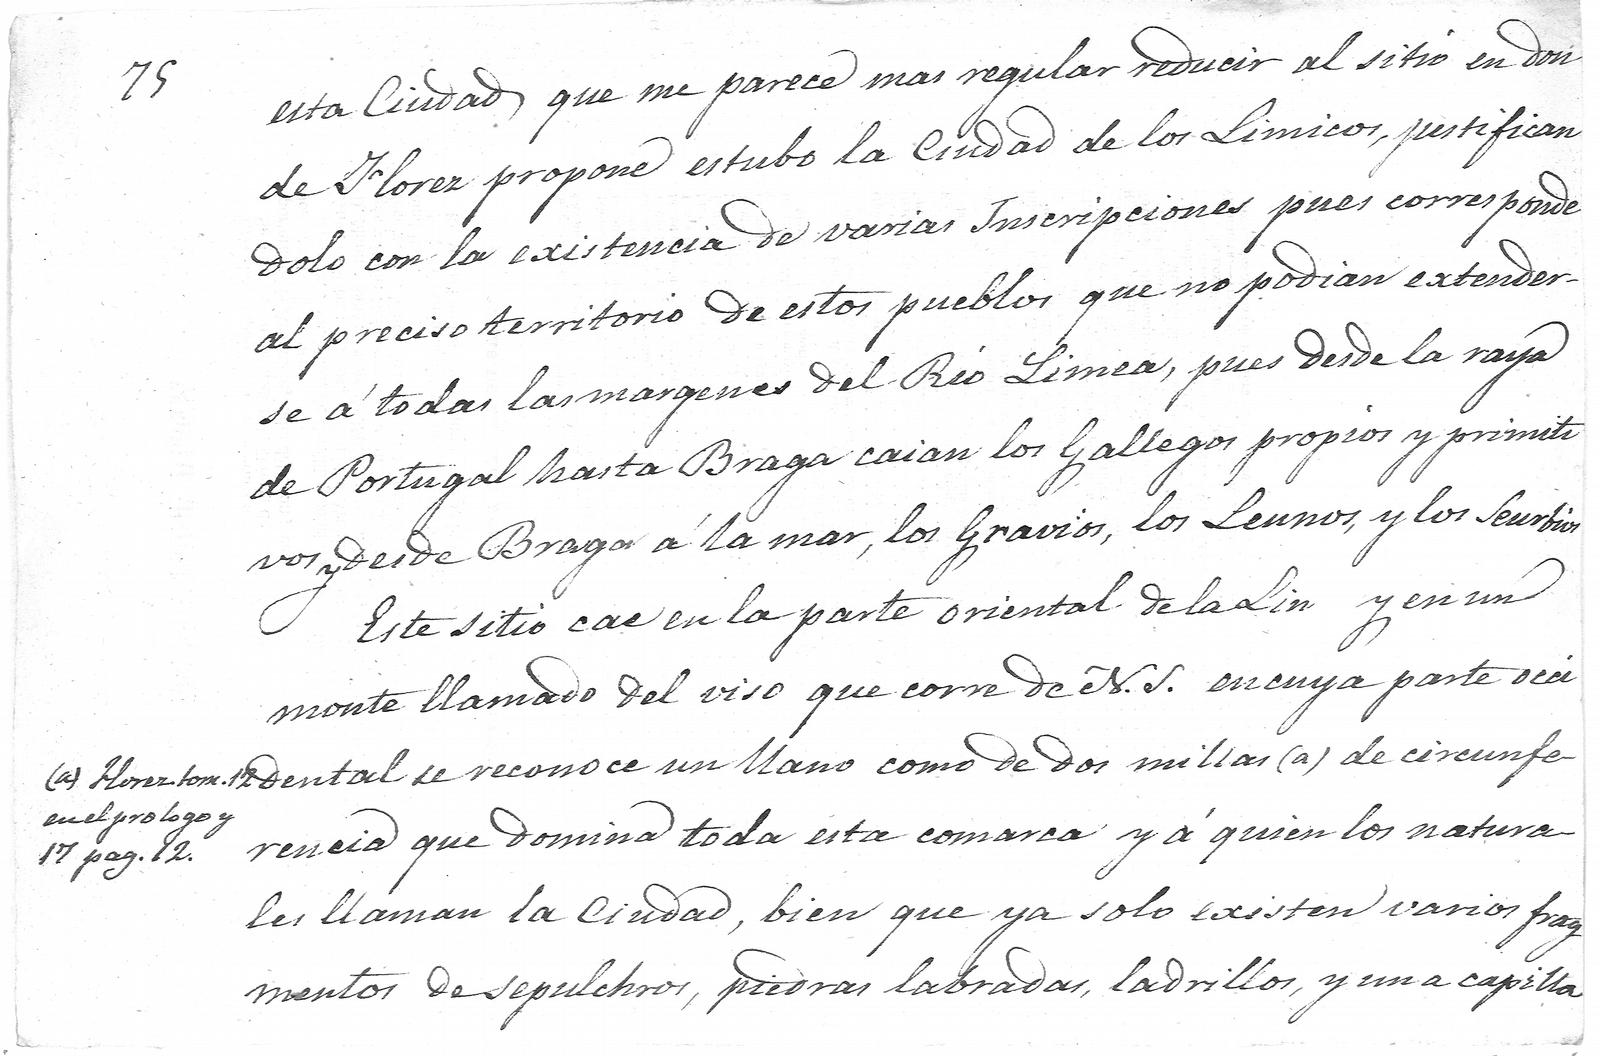 75
esta Ciudad, que me parece mas regular reducir al sitio en don
de Florez propone estubo la Ciudad de los Limicos, justifican
dolo con la existencia de varias Inscripciones pues corresponde
al preciso territorio de estos pueblos que no podian extender-
se á todas las margenes del Rio Limea, pues desde la raya
de Portugal hasta Braga caian los Gallegos propios y primiti
vos y desde Braga á la mar, los Gravios, los Leunos, y los Seurbios
Este sitio cae en la parte oriental de la Lin y en un
monte llamado del viso que corre de N. S. en cuya parte occi
dental se reconoce un llano como de dos millas (a) de circunfe-
rencia que domina toda esta comarca y á quien los natura-
les llaman la Ciudad, bien que ya solo existen varios frag
mentos de sepulchros, piedras labradas, ladrillos, y una capilla
(a) Florez tom. 12
en el prologo y
17 pag. 12.